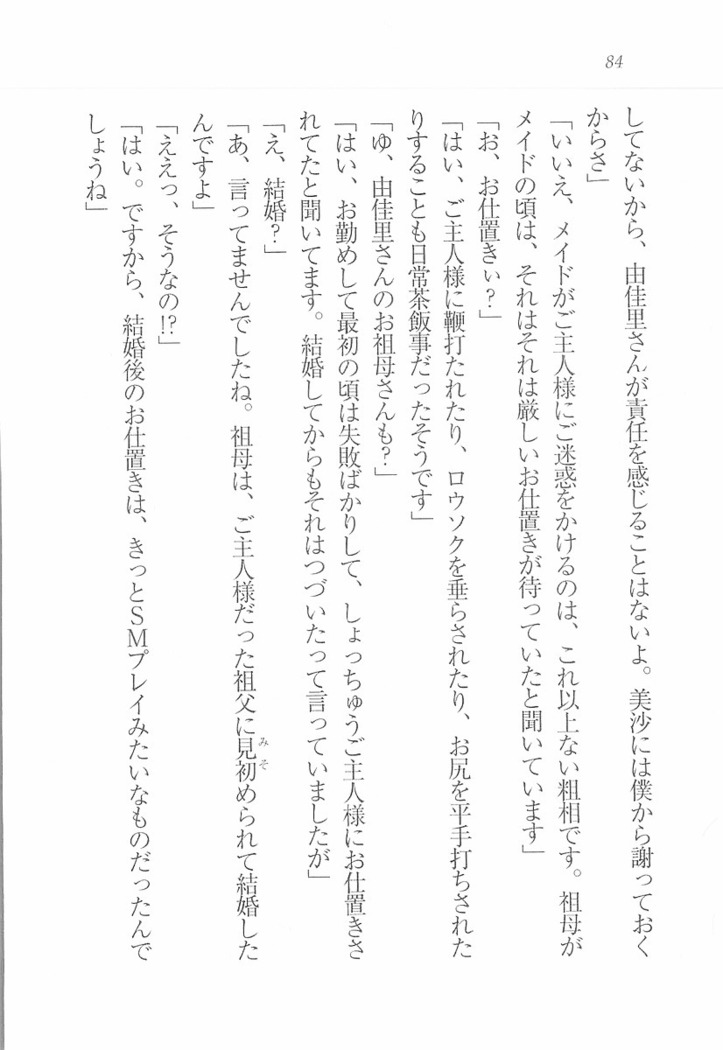 84
してないから、由佳里さんが責任を感じることはないよ。美沙には僕から謝っておく
からさ」
「いいえ、メイドがご主人様にご迷惑をかけるのは、これ以上ない粗相です。祖母が
メイドの頃は、それはそれは厳しいお仕置きが待っていたと聞いています」
「お、お仕置きぃ？」
「はい、ご主人様に鞭打たれたり、ロウソクを垂らされたり、お尻を平手打ちされた
りすることも日常茶飯事だったそうです」
「ゆ、由佳里さんのお祖母さんも？」
「はい、お勤めして最初の頃は失敗ばかりして、しょっちゅうご主人様にお仕置きさ
れてたと聞いてます。結婚してからもそれはつづいたって言っていましたが」
「え、結婚？」
「あ、言ってませんでしたね。祖母は、ご主人様だった祖父に見初められて結婚した
みそ
んですよ」
「ええっ、そうなの!?」
「はい。ですから、結婚後のお仕置きは、きっとＳＭプレイみたいなものだったんで
しょうね」